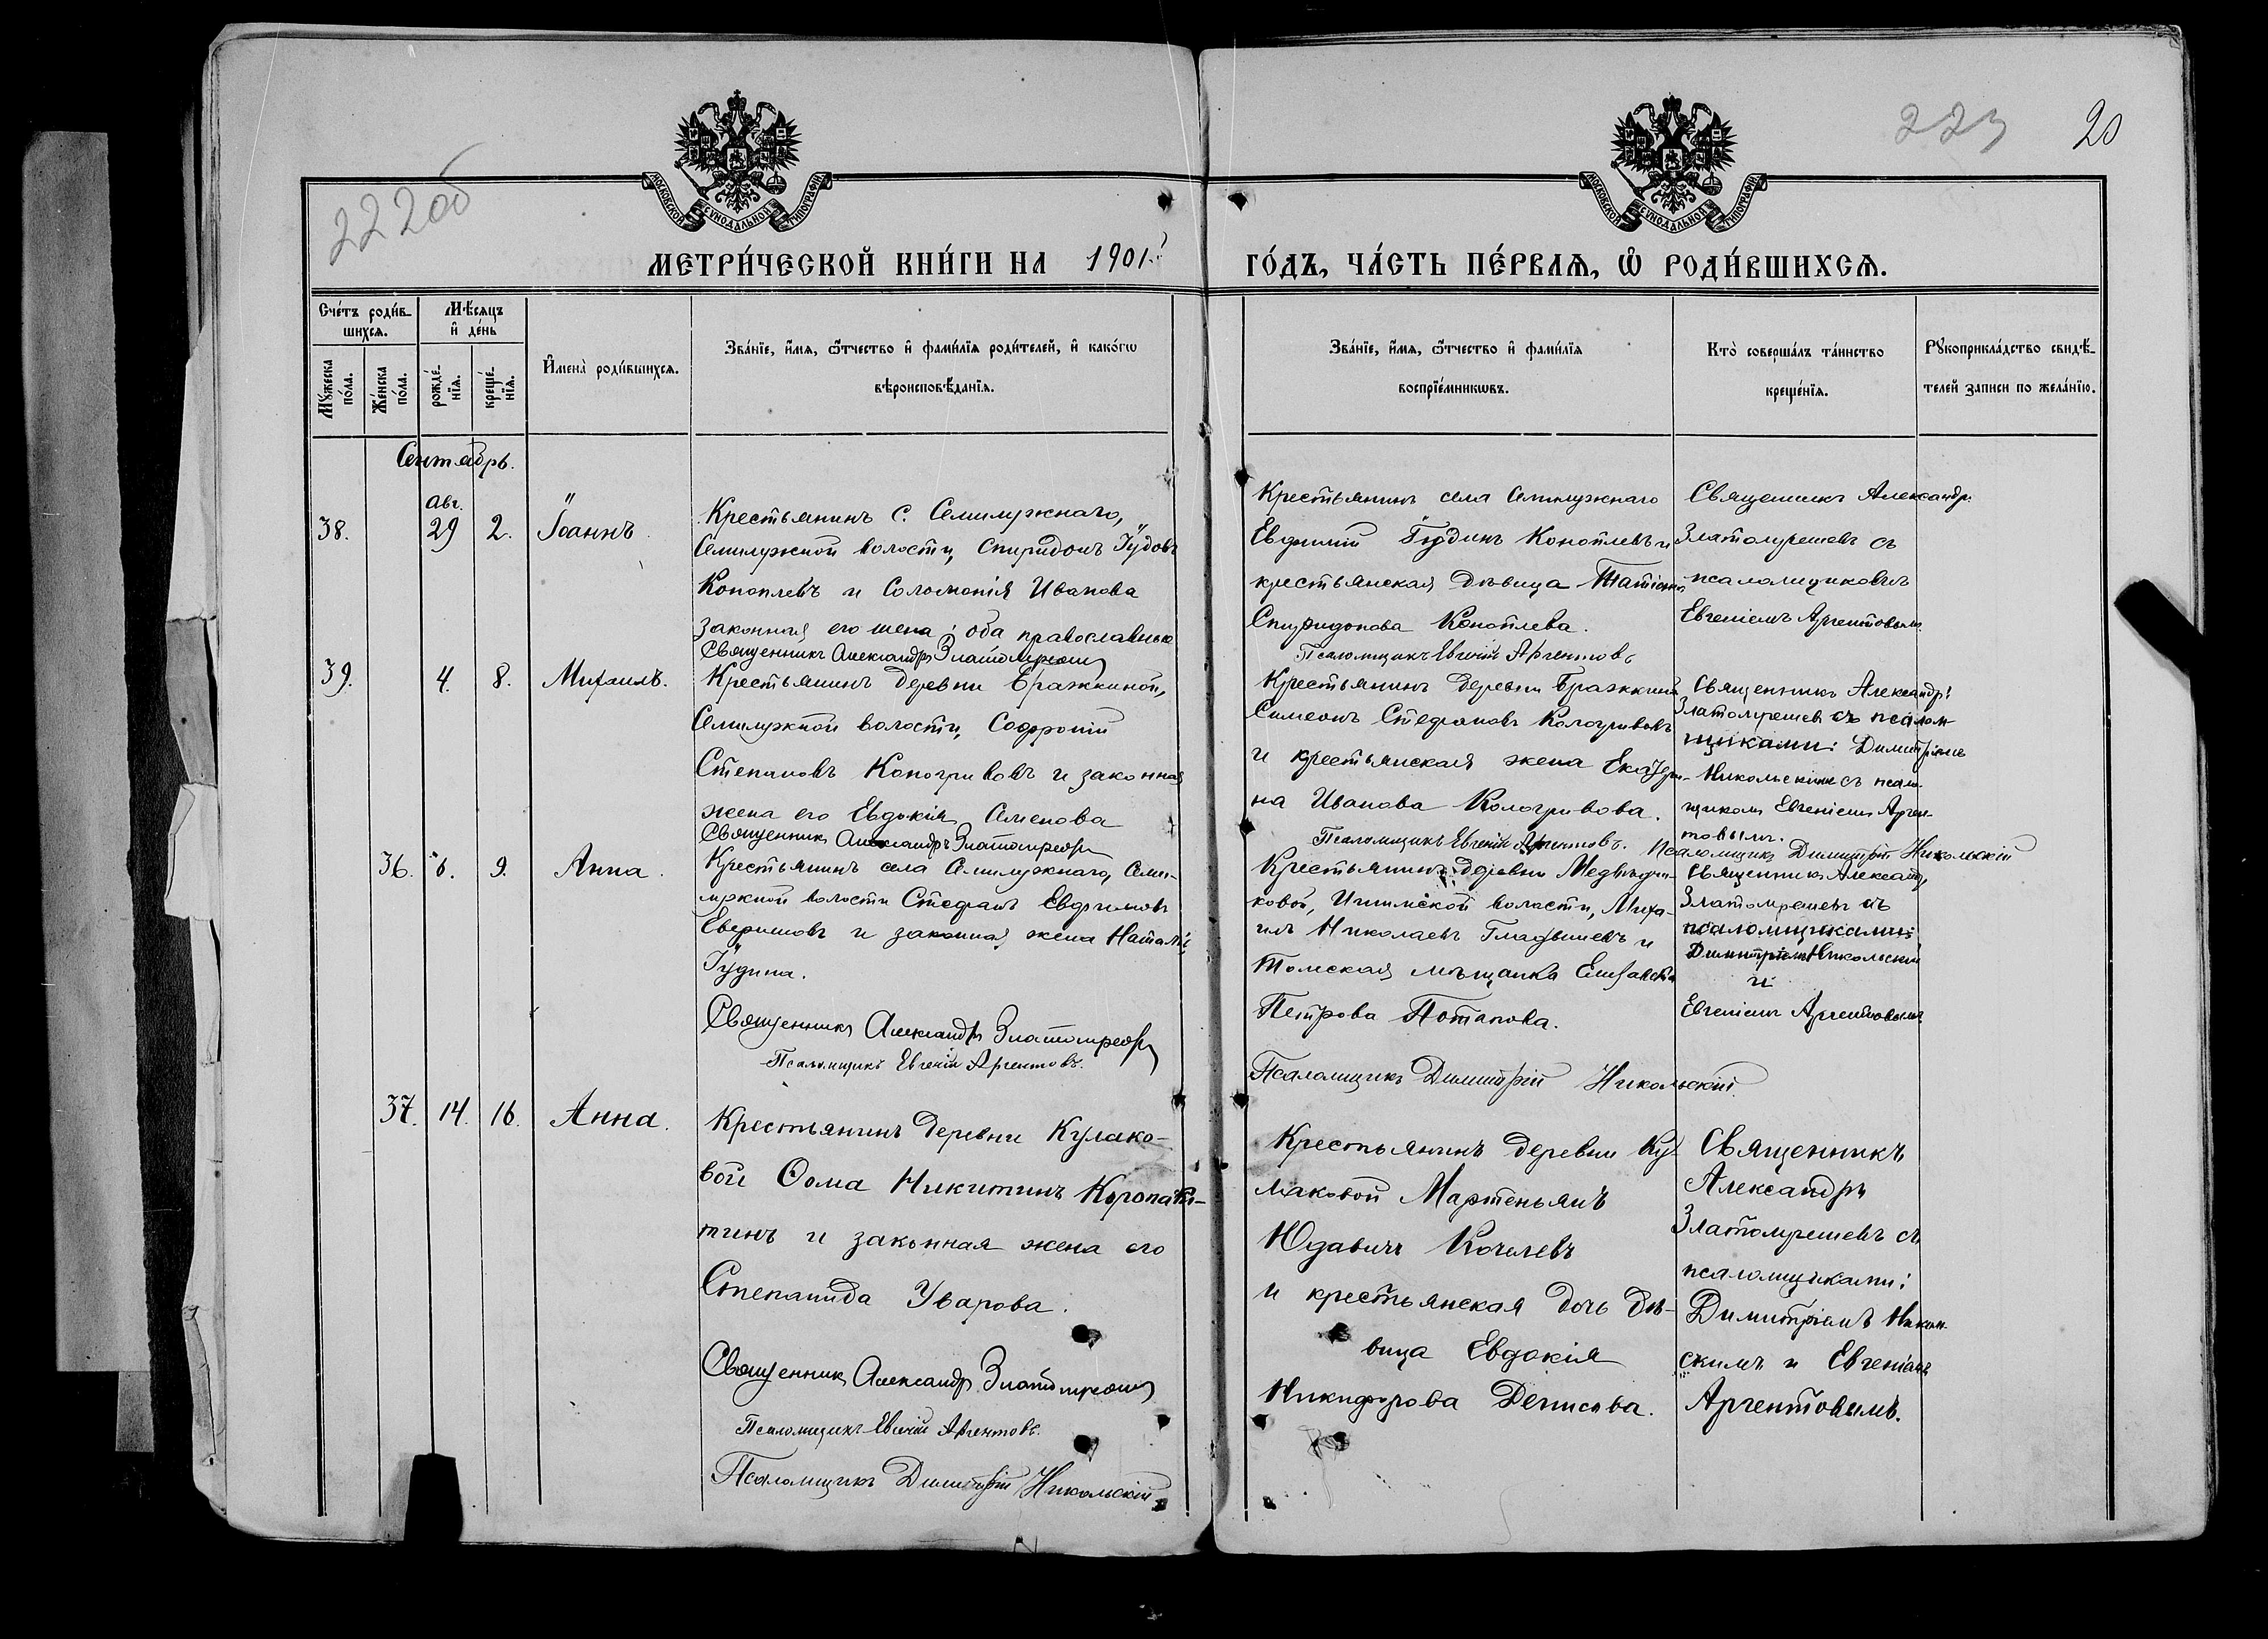 222об
223
20
МОСКОВСКОЙ СѴНОДАЛЬНОЙ ТИПОГРАФІИ
МОСКОВСКОЙ СѴНОДАЛЬНОЙ ТИПОГРАФІИ
МЕТРИ́ЧЕСКОЙ КНИ́ГИ НА 1901.
ГО́ДЪ, ЧА́СТЬ ПЕ́РВАѦ, Ѡ҆ РОДИ́ВШИХСѦ.
Сче́тъ роди́в-
шихсѧ.
Мѹжеска по́ла.
Же́нска по́ла.
Мѣ́сѧцъ
и҆ де́нь
рожде́-нїѧ.
креще́-нїѧ.
И҆мена̀ роди́вшихсѧ.
Зва́нїе, и҆́мѧ, ѻ҆́тчество и҆ фами́лїѧ роди́телей, и҆ како́гѡ
вѣроисповѣ́данїѧ.
Зва́нїе, и҆́мѧ, ѻ҆́тчество и҆ фами́лїѧ
воспрїе́мникѡвъ.
Кто̀ соверша́лъ та́инство
креще́нїѧ.
Рꙋкоприкла́дство свидѣ́-
телей записи по жела́нїю.
Сентябрь.
38.
Авг.
29
2.
Іоаннъ.
Крестьянинъ с. Семилужнаго,
Семилужной волости, Спиридонъ Іудовъ
Коноплевъ и Соломонія Иванова
законная его жена; оба православные
Священникъ Александръ Златомрежев
Крестьянинъ села Семилужнаго
Евфимій Іудинъ Коноплевъ и
крестьянская дѣвица Татіана
Спиридонова Коноплева.
Псаломщикъ Евгеній Аргентовъ
Священникъ Александръ
Златомрежевъ съ
псаломщикомъ
Евгеніемъ Аргентовым
39.
4.
8.
Михаилъ.
Крестьянинъ деревни Бражкиной,
Семилужной волости, Софроній
Степановъ Кологривовъ и законная
жена его Евдокія Семенова
Священникъ Александръ Златомрежев
Крестьянинъ деревни Бражкиной
Симеонъ Стефановъ Кологривовъ
и крестьянская жена Екатери-
на Иванова Кологривова.
Псаломщикъ Евгеній Аргентовъ. Псаломщикъ Димитрій Никольскій
Священникъ Александръ
Златомрежевъ съ псалом-
щиками: Димитріемъ
Никольскимъ съ псалом-
щиком Евгеніемъ Арген-
товымъ.
36.
6.
9.
Анна.
Крестьянинъ села Семилужнаго, Семи-
лужной волости Стефанъ Евфимовъ
и законная жена Наталія
Іудина.
Священникъ Александръ Златомрежев
Псаломщикъ Евгеній Аргентовъ.
Крестьянинъ деревни Медвѣдчи-
ковой, Ишимской волости, Миха-
илъ Николаевъ Гладышевъ и
Томская мѣщанка Елизавета
Петрова Потапова.
Псаломщикъ Димитрій Никольскій.
Священникъ Александръ
Златомрежевъ съ
псаломщиками:
Димитріемъ Никольским
и
Евгеніемъ Аргентовымъ.
37.
14.
16.
Анна.
Крестьянинъ деревни Кулако-
вой Ѳома Никитинъ Коропат-
тинъ и законная жена его
Степанида Уварова.
Священникъ Александръ Златомрежев
Псаломщикъ Евгеній Аргентовъ.
Псаломщикъ Димитрій Никольскій
Крестьянинъ деревни Ку-
лаковой Мартеньянъ
Юдавичъ Кочелевъ
и крестьянская дочь дѣ-
вица Евдокія
Никифорова Денисова.
Священникъ
Александръ
Златомрежевъ съ
псаломщиками:
Димитріемъ Николь-
скимъ и Евгеніемъ
Аргентовымъ.